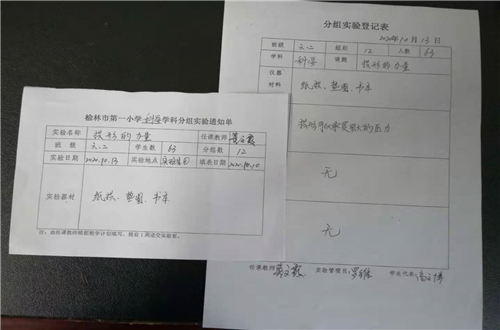 榆林市第一小学科学学科分组实验通知单
实验名称 拱形的力量 任课教师
班级 六.二 学生数 63 分组数 12
实验日期 2020.10.13 实验地点 实验室 填表日期 2020.10.10
实验器材 纸板、垫圈、书本
注：由任课教师根据教学计划填写，提前1周送交实验室。
分组实验登记表
2020年10月13日
班级 六.二 组别 12 人数 63
学科 科学 课题 拱形的力量
仪器
材料 纸板、垫圈、书本
拱形可以承受很大的压力
无
无
任课教师 实验管理员 学生代表